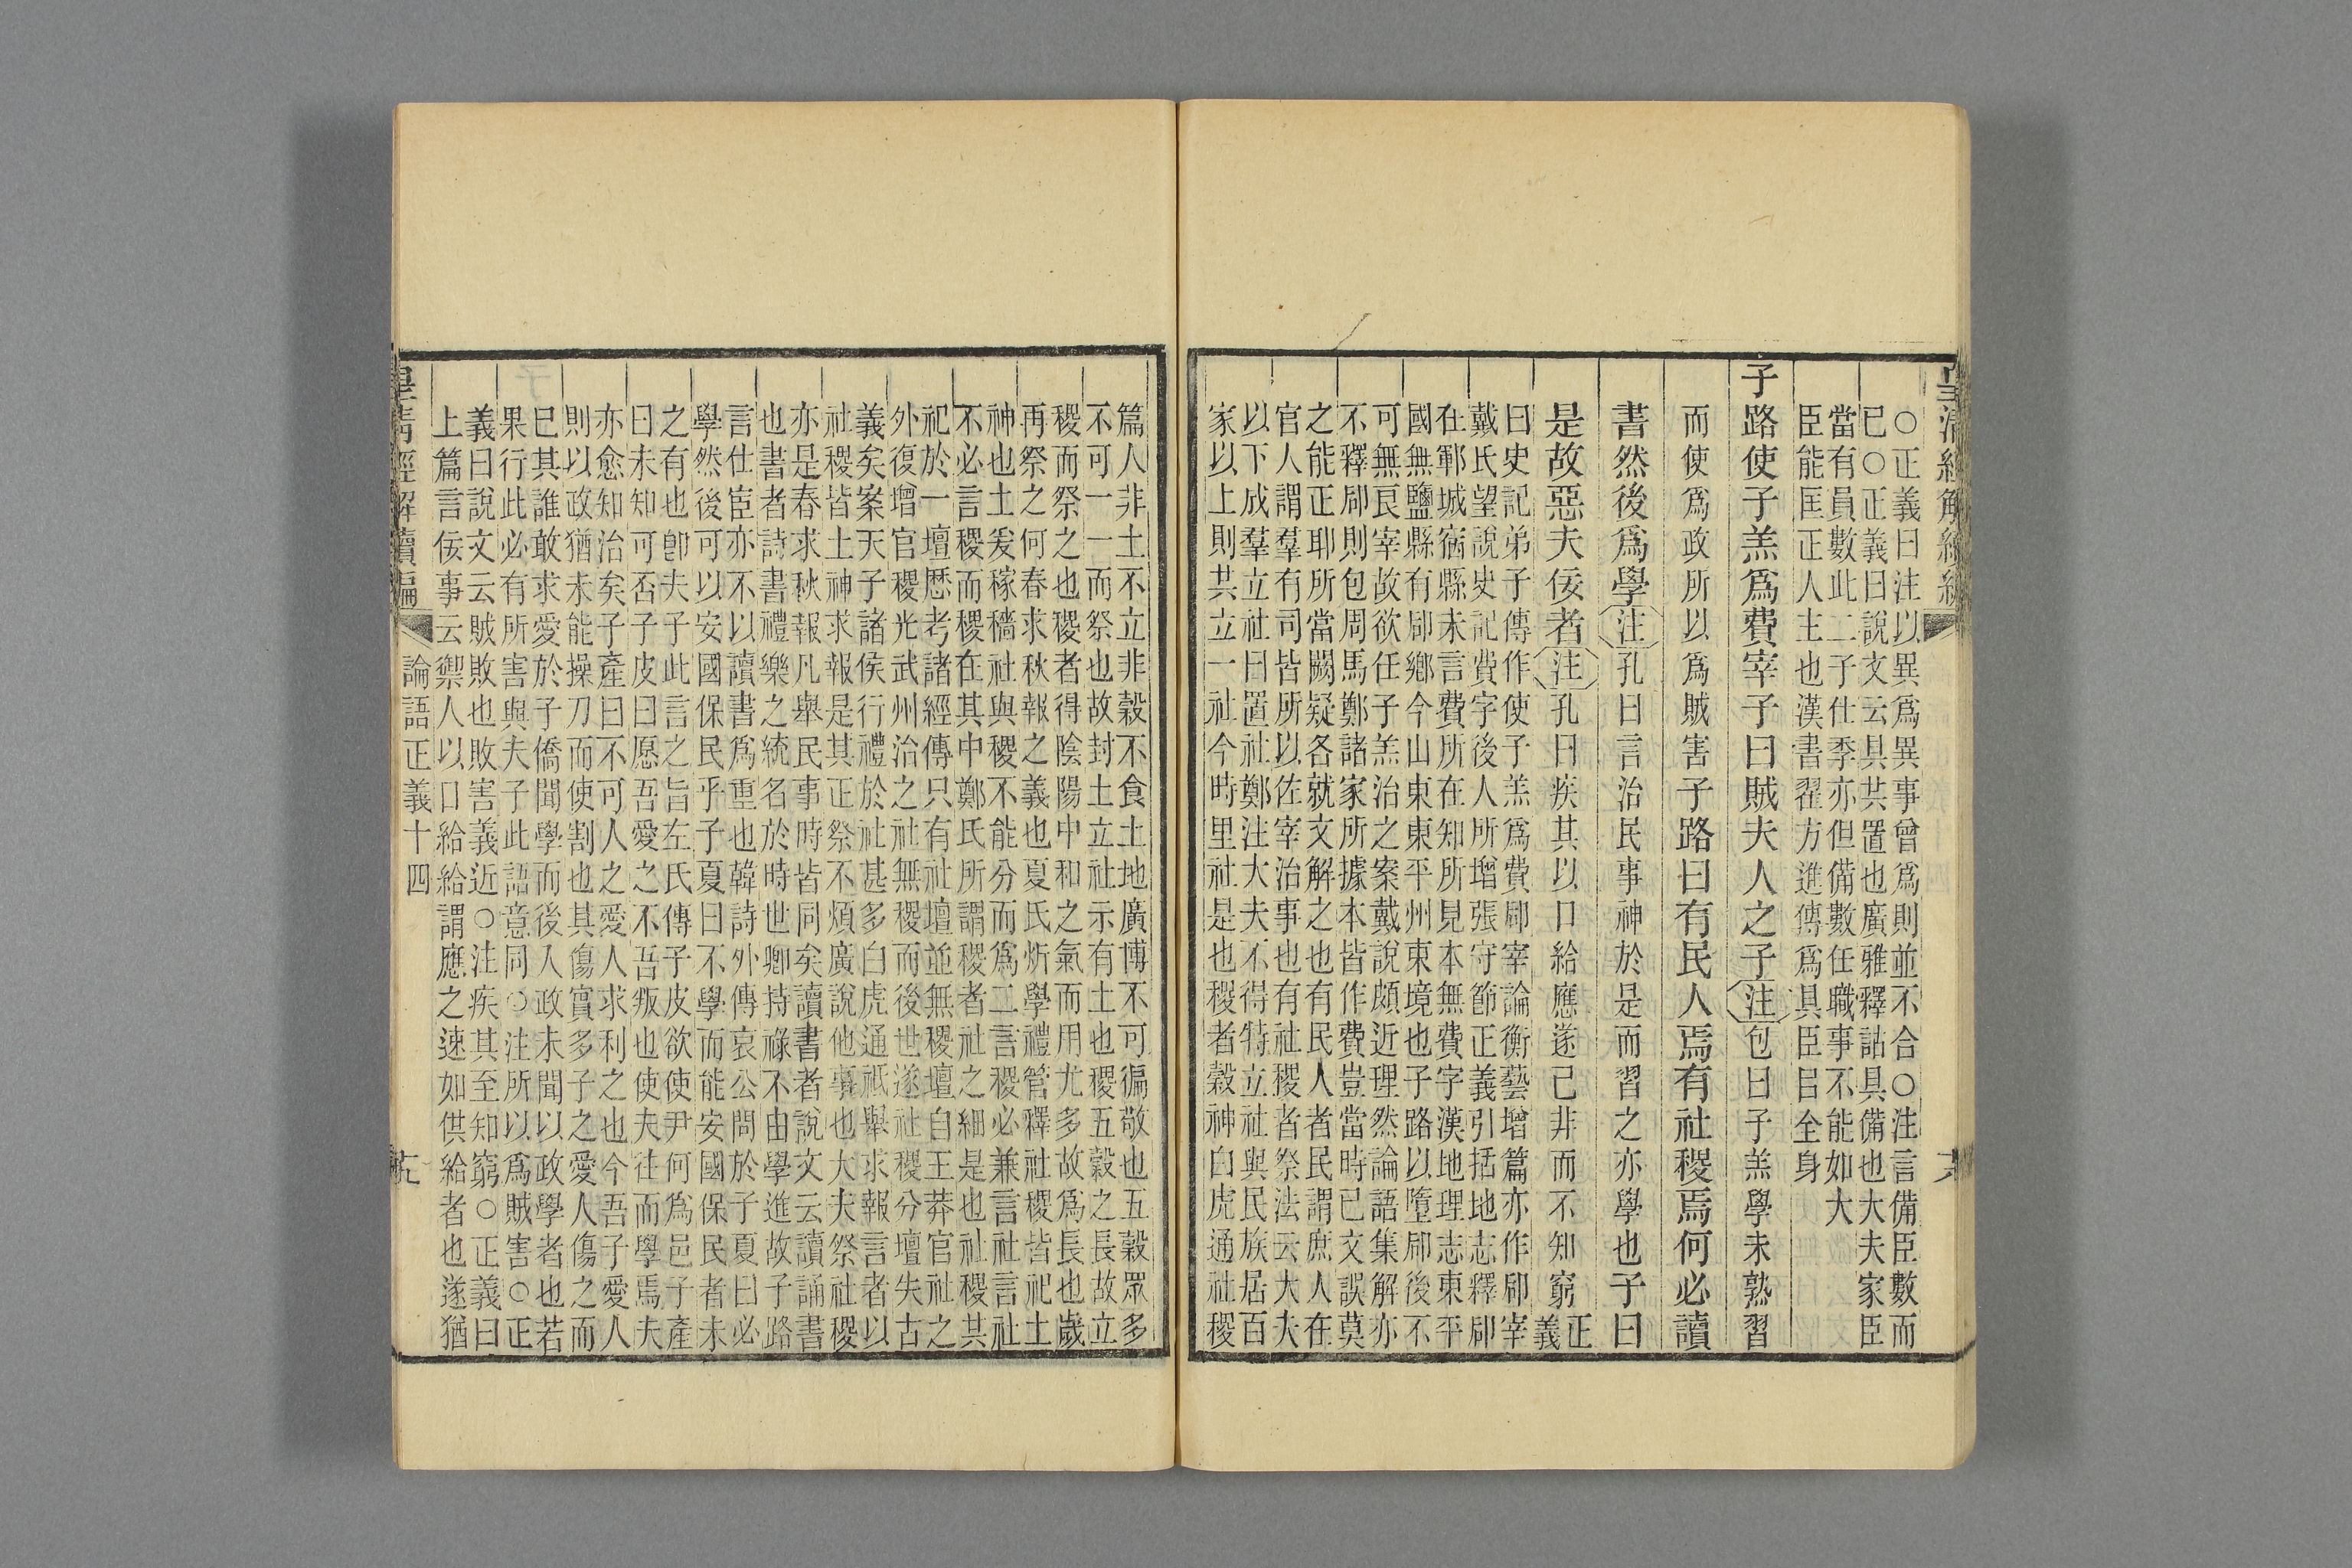 ○正義曰注以異爲異事曾爲則並不合○注言備臣數而
已○正義曰說文云具共置也廣雅釋詁具備也大夫家臣
當有員數此二子仕季亦但備數任職事不能如大
臣能匡正人主也漢書翟方進傳爲具臣㠯全身
子路使子羔爲費宰子曰賊夫人之子注包曰子羔學未熟習
而使爲政所以爲賊害子路曰有民人焉有社稷焉何必讀
書然後爲學注孔曰言治民事神於是而習之亦學也子曰
是故惡夫佞者注孔曰疾其以口給應遂己非而不知窮正
義
曰史記弟子傳作使子羔爲費郈宰論衡藝增篇亦作郈宰
戴氏望說史記費字後人所增張守節正義引括地志釋郈
在鄆城宿縣未言費所在知所見本無費字漢地理志東平
國無鹽縣有郈鄉今山東東平州東境也子路以墮郈後不
可無良宰故欲任子羔治之案戴說頗近理然論語集解亦
不釋郈則包周馬鄭諸家所據本皆作費豈當時已文誤莫
之能正耶所當闕疑各就文解之也有民人者民謂庶人在
官人謂羣有司皆所以佐宰治事也有社稷者祭法云大夫
以下成羣立社曰置社鄭注大夫不得特立社與民族居百
家以上則共立一社今時里社是也稷者穀神白虎通社稷
篇人非土不立非穀不食土地廣博不可徧敬也五穀眾多
不可一一而祭也故封土立社示有土也稷五穀之長故立
稷而祭之也稷者得陰陽中和之氣而用尤多故爲長也歲
再祭之何春求秋報之義也夏氏炘學禮管釋社稷皆祀土
神也土爰稼穡社與稷不能分而爲二言稷必兼言社言社
不必言稷而稷在其中鄭氏所謂稷者社之細是也社稷其
祀於一壇歷考諸經傳只有社壇並無稷壇自王莽官社之
外復增官稷光武州治之社無稷而後世遂社稷分壇失古
義矣案天子諸侯行禮於社甚多白虎通祇舉求報言者以
社稷皆土神求報是其正祭不煩廣說他事也大夫祭社稷
亦是春求秋報凡舉民事時皆同矣讀書者說文云讀誦書
也書者詩書禮樂之統名於時世卿持祿不由學進故子路
言仕宦亦不以讀書爲重也韓詩外傳哀公問於子夏曰必
學然後可以安國保民乎子夏曰不學而能安國保民者未
之有也卽夫子此言之旨左氏傳子皮欲使尹何爲邑子產
曰未知可否子皮曰愿吾愛之不吾叛也使夫往而學焉夫
亦愈知治矣子產曰不可人之愛人求利之也今吾子愛人
則以政猶未能操刀而使割也其傷實多子之愛人傷之而
已其誰敢求愛於子僑聞學而後入政未聞以政學者也若
果行此必有所害與夫子此詔意同○注所以爲賊害○正
義曰說文云賊敗也敗害義近○注疾其至知窮○正義曰
上篇言佞事云禦人以口給給謂應之速如供給者也遂猶
論語正義十四